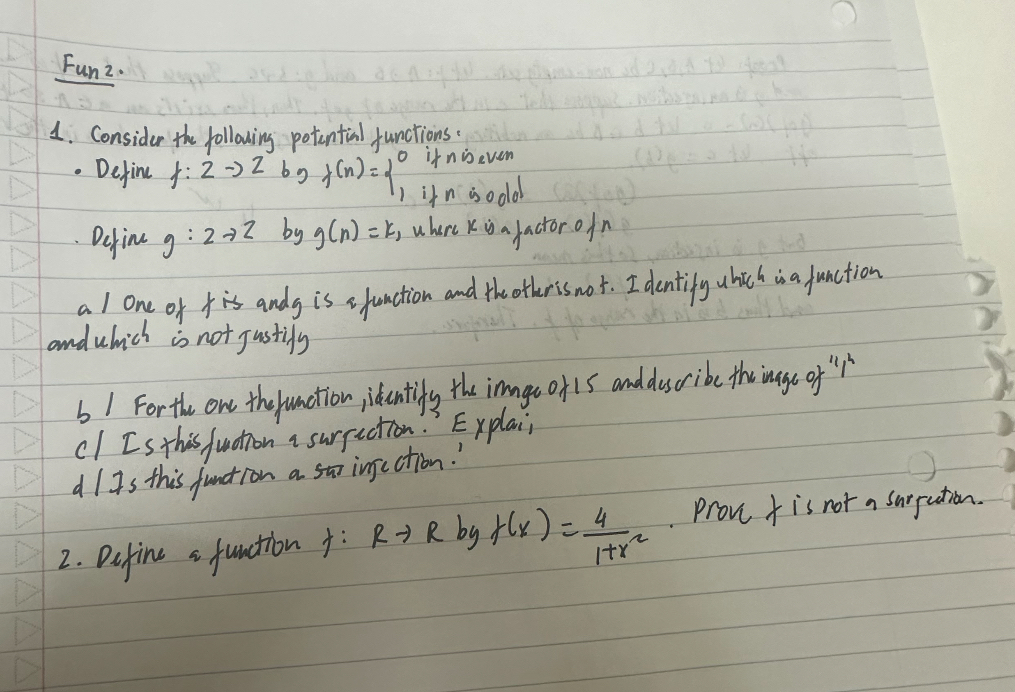 Fun 2.
1. Consider the following potential functions:
• Define f: Z -> Z by f(n) = { 0 if n is even
1, if n is odd
. Define g : Z → Z by g(n) = k, where k is a factor of n
a / One of f is and g is a function and the other is not. Identify which is a function
and which is not justify
b / For the one the function, identify the image of 15 and describe the image of "1"
c / Is this fuction a surjection? Explai,
d / Is this function a injection?
2. Define a function f: R → R by f(x) = 4/1+x². Prove f is not a surjection.